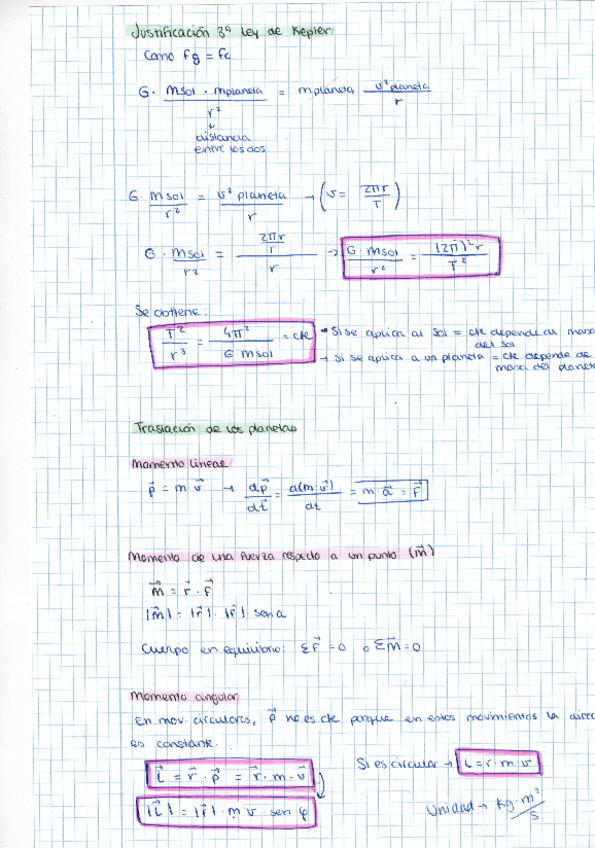 Justificación 3ª Ley de Kepler
Como Fg = Fc
G · Msol · mplaneta / r² = mplaneta v² planeta / r
↓
distancia
entre los dos
G · Msol / r² = v² planeta / r → (v = 2πr / T)
G · Msol / r² = 2πr / T / r → G Msol / r² = (2π)² r / T²
Se obtiene:
T² / r³ = 4π² / G Msol = cte • Si se aplica al Sol = cte depende de masa
del sol
→ Si se aplica a un planeta = cte depende de
masa del planeta
Traslación de los planetas
Momento lineal
p⃗ = m · v⃗ → dp⃗ / dt = d(m v⃗) / dt = m · a⃗ = F⃗
Momento de una fuerza respecto a un punto (m⃗)
m⃗ = r⃗ · F⃗
|m⃗| = |r⃗| · |F⃗| · sen α
Cuerpo en equilibrio: ΣF⃗ = 0 o Σm⃗ = 0
Momento angular
En mov. circulares, p⃗ no es cte porque en estos movimientos la direc
es constante.
L⃗ = r⃗ · p⃗ = r⃗ · m · v⃗
Si es circular → L = r · m · v
|L⃗| = |r⃗| · m v sen φ
Unidad → kg · m² / s